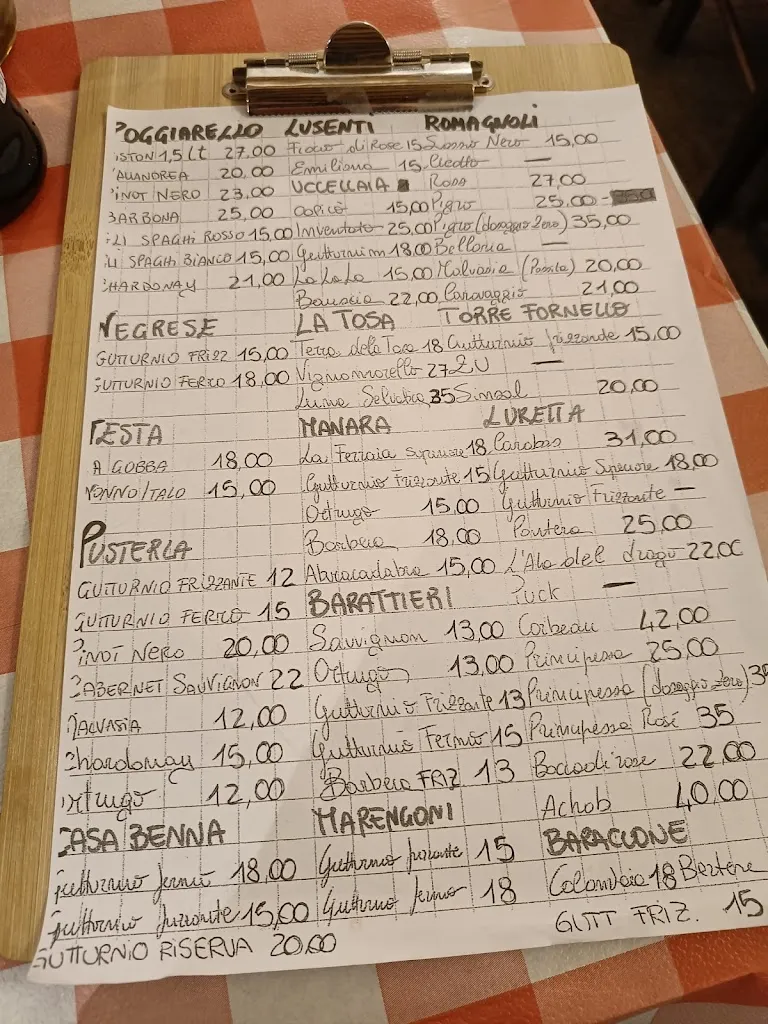 POGGIARELLO
ISTON 1,5 Lt 27,00
VALANDREA 20,00
PINOT NERO 23,00
BARBONA 25,00
SPAGHI ROSSO 15,00
SPAGHI BIANCO 15,00
CHARDONAY 21,00
LUSENTI
Fiocco di Rose 15
Emiliana 15
UCCELLAIA
15,00
Inventato 25,00
Gutturnium 18,00
La LaLa 15,00
22,00
ROMAGNOLI
Sasso Nero 15,00
Cicotto —
RODA 27,00
Pigro 25,00
Pigro (dosaggio zero) 35,00
Bellaria —
Malvasia (Passita) 20,00
Caravaggio 21,00
NEGRESE
GUTTURNIO FRIZZ 15,00
GUTTURNIO FERMO 18,00
LA TOSA
Terre della Tosa 18
Vignamorello 27
Luna Selvatica 35
TORRE FORNELLO
Gutturnio frizzante 15,00
ZU —
Sinsal 20,00
TESTA
A GOBBA 18,00
NONNO ITALO 15,00
MANARA
La Ferraia superiore 18
Gutturnio Frizzante 15
Ortrugo 15,00
Barbera 18,00
Abracadabra 15,00
LURETTA
Carabas 31,00
Gutturnio Superiore 18,00
Gutturnio Frizzante —
Pantera 25,00
L'Ala del drago 22,00
Puck —
Corbeau 42,00
Principessa 25,00
Principessa (dosaggio zero) 35
Principessa Rosé 35
Boccadirose 22,00
Achab 40,00
PUSTERLA
GUTTURNIO FRIZZANTE 12
GUTTURNIO FERMO 15
PINOT NERO 20,00
CABERNET SAUVIGNON 22
MALVASIA 12,00
Chardonnay 15,00
Ortrugo 12,00
BARATTIERI
Sauvignon 13,00
Ortrugo 13,00
Gutturnio Frizzante 13
Gutturnio Fermo 15
Barbera FRIZ 13
CASA BENNA
Gutturnio fermo 18,00
Gutturnio frizzante 15,00
GUTTURNIO RISERVA 20,00
MARENGONI
Gutturnio frizzante 15
Gutturnio fermo 18
BARACCONE
Colombaia 18 Bertone
GUTT FRIZ. 15